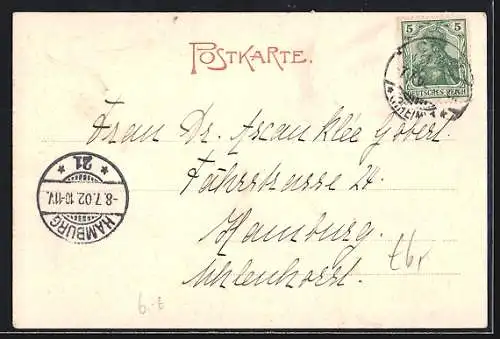 POSTKARTE.
5 5
DEUTSCHES REICH
Frau Dr. Ascan Klée Gobert.
Fährstrasse 24.
Hamburg.
Uhlenhorst.
* 21 *
-8.7.02.10-11V.
HAMBURG
6.-